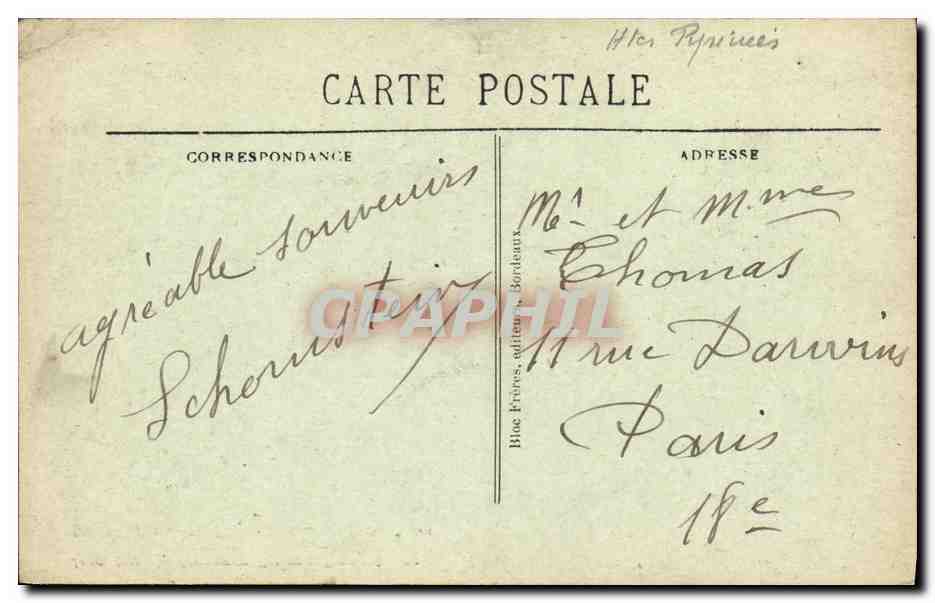 Htes Pyrénées
CARTE POSTALE
CORRESPONDANCE
ADRESSE
agréable souvenirs
Schornstein
Bloc Frères, editeurs, Bordeaux
Mr et M.mme
Thomas
11 rue Darwins
Paris
18e
CPAPHIL